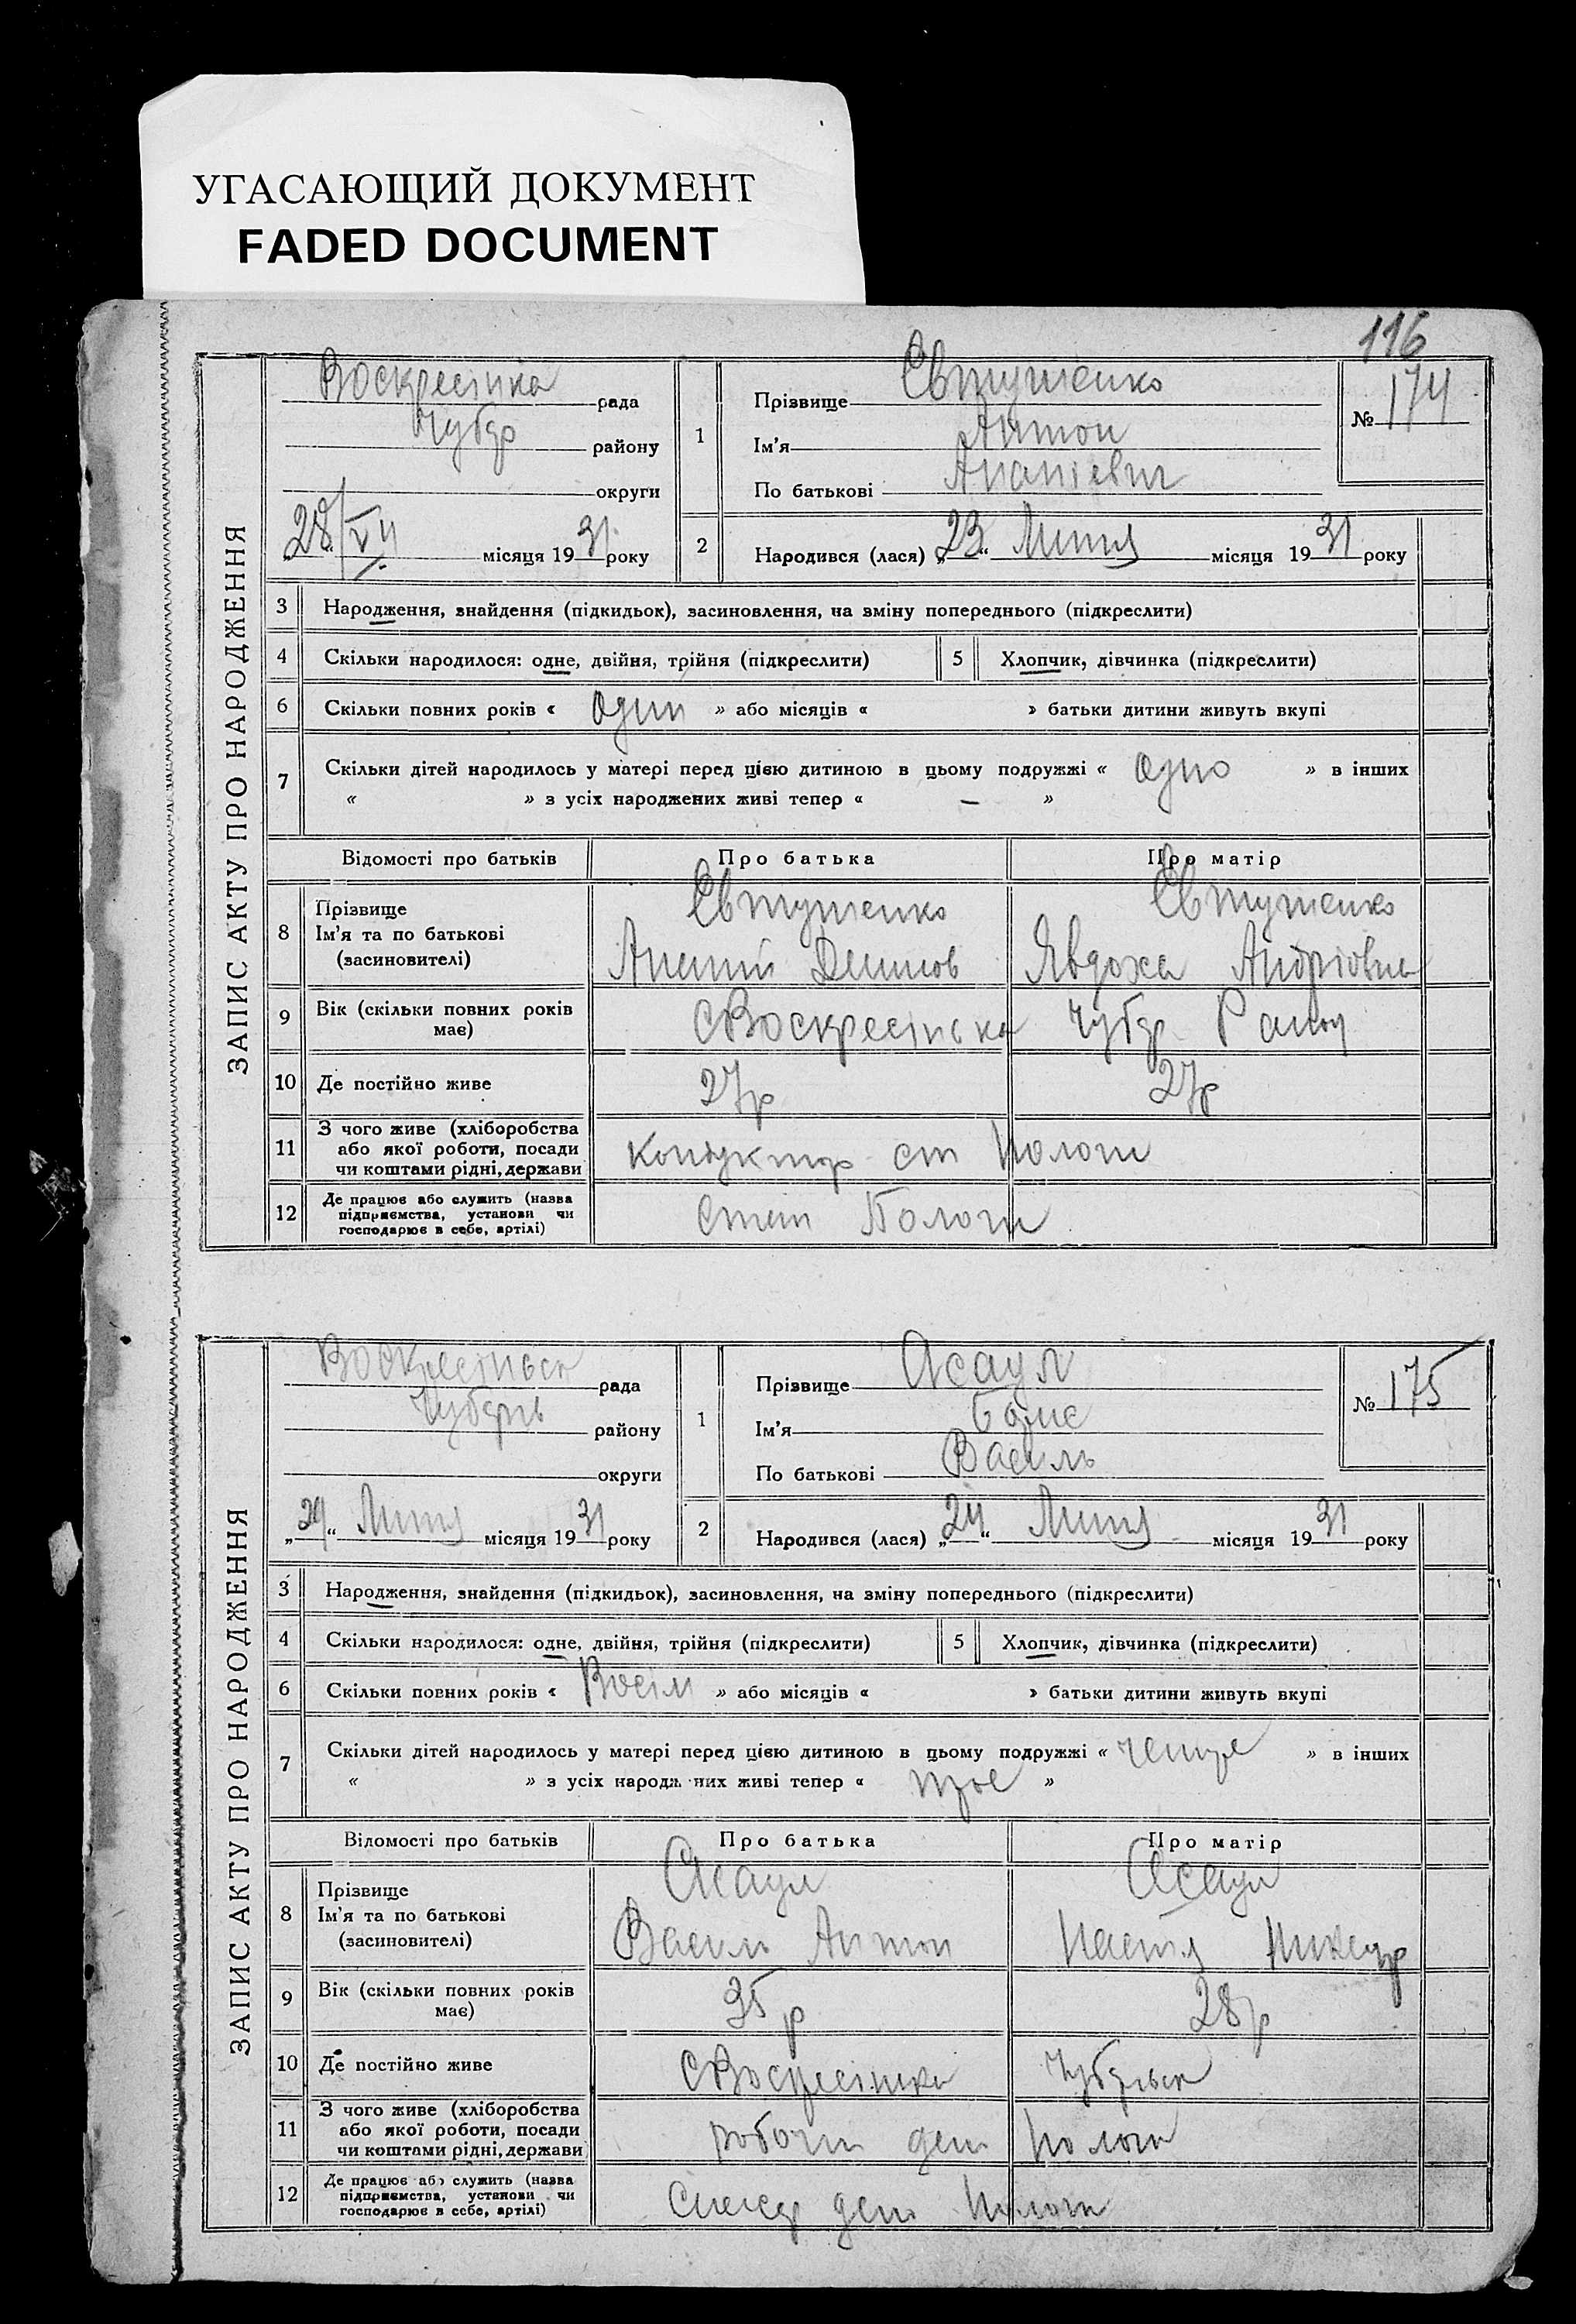 УГАСАЮЩИЙ ДОКУМЕНТ
FADED DOCUMENT
116
ЗАПИС АКТУ ПРО НАРОДЖЕННЯ
Воскресінка рада
Чубар району
округи
28/VII місяця 1931 року
1
Прізвище Євтушенко
Ім'я Антон
По батькові Ананіевич
№ 174
2
Народився (лася) „23“ Липня місяця 1931 року
3 Народження, знайдення (підкидьок), засиновлення, на зміну попереднього (підкреслити)
4 Скільки народилося: одне, двійня, трійня (підкреслити) 5 Хлопчик, дівчинка (підкреслити)
6 Скільки повних років « один » або місяців « » батьки дитини живуть вкупі
7 Скільки дітей народилось у матері перед цією дитиною в цьому подружжі « одно » в інших
« » з усіх народжених живі тепер « – »
Відомості про батьків Про батька Про матір
8 Прізвище Євтушенко Євтушенко
Ім'я та по батькові Ананій Явдоха Андріовна
(засиновителі)
9 Вік (скільки повних років має) с Воскресінка Чубар
10 Де постійно живе 27р 27р
11 З чого живе (хліборобства або якої роботи, посади чи коштами рідні, держави кондуктор ст Пологи
12 Де працює або служить (назва підприємства, установи чи господарює в себе, артілі) Пологи
ЗАПИС АКТУ ПРО НАРОДЖЕННЯ
рада
району
округи
„29“ Липня місяця 1931 року
1
Прізвище Асаул
Ім'я
По батькові Василь
№ 175
2
Народився (лася) „24“ Липня місяця 1931 року
3 Народження, знайдення (підкидьок), засиновлення, на зміну попереднього (підкреслити)
4 Скільки народилося: одне, двійня, трійня (підкреслити) 5 Хлопчик, дівчинка (підкреслити)
6 Скільки повних років « Восім » або місяців « » батьки дитини живуть вкупі
7 Скільки дітей народилось у матері перед цією дитиною в цьому подружжі « » в інших
« » з усіх народжених живі тепер « трое »
Відомості про батьків Про батька Про матір
8 Прізвище Асаул Асаул
Ім'я та по батькові Василь Антон Настя
(засиновителі)
9 Вік (скільки повних років має) 35р 28р
10 Де постійно живе с Воскресінка
11 З чого живе (хліборобства або якої роботи, посади чи коштами рідні, держави Пологи
12 Де працює або служить (назва підприємства, установи чи господарює в себе, артілі) Пологи